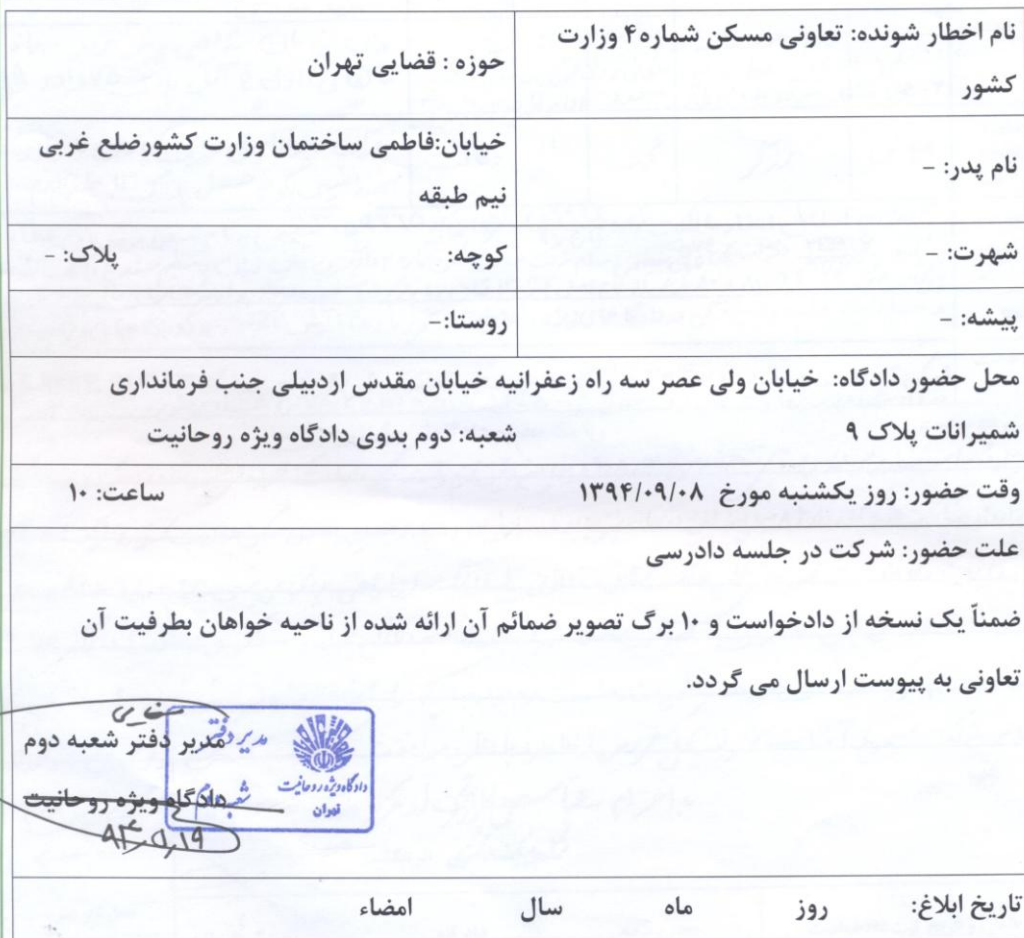 نام اخطار شونده: تعاونی مسکن شماره ۴ وزارت کشور
حوزه : قضایی تهران
نام پدر: -
خیابان:فاطمی ساختمان وزارت کشورضلع غربی
نیم طبقه
شهرت: -
کوچه:
پلاک: -
پیشه: -
روستا:-
محل حضور دادگاه: خیابان ولی عصر سه راه زعفرانیه خیابان مقدس اردبیلی جنب فرمانداری
شمیرانات پلاک ۹
شعبه: دوم بدوی دادگاه ویژه روحانیت
وقت حضور: روز یکشنبه مورخ ۱۳۹۴/۰۹/۰۸
ساعت: ۱۰
علت حضور: شرکت در جلسه دادرسی
ضمناً یک نسخه از دادخواست و ۱۰ برگ تصویر ضمائم آن ارائه شده از ناحیه خواهان بطرفیت آن
تعاونی به پیوست ارسال می گردد.
مدیر دفتر شعبه دوم
دادگاه ویژه روحانیت
مدیر دفتر
دادگاه ویژه روحانیت
تهران
تاریخ ابلاغ: روز ماه سال امضاء